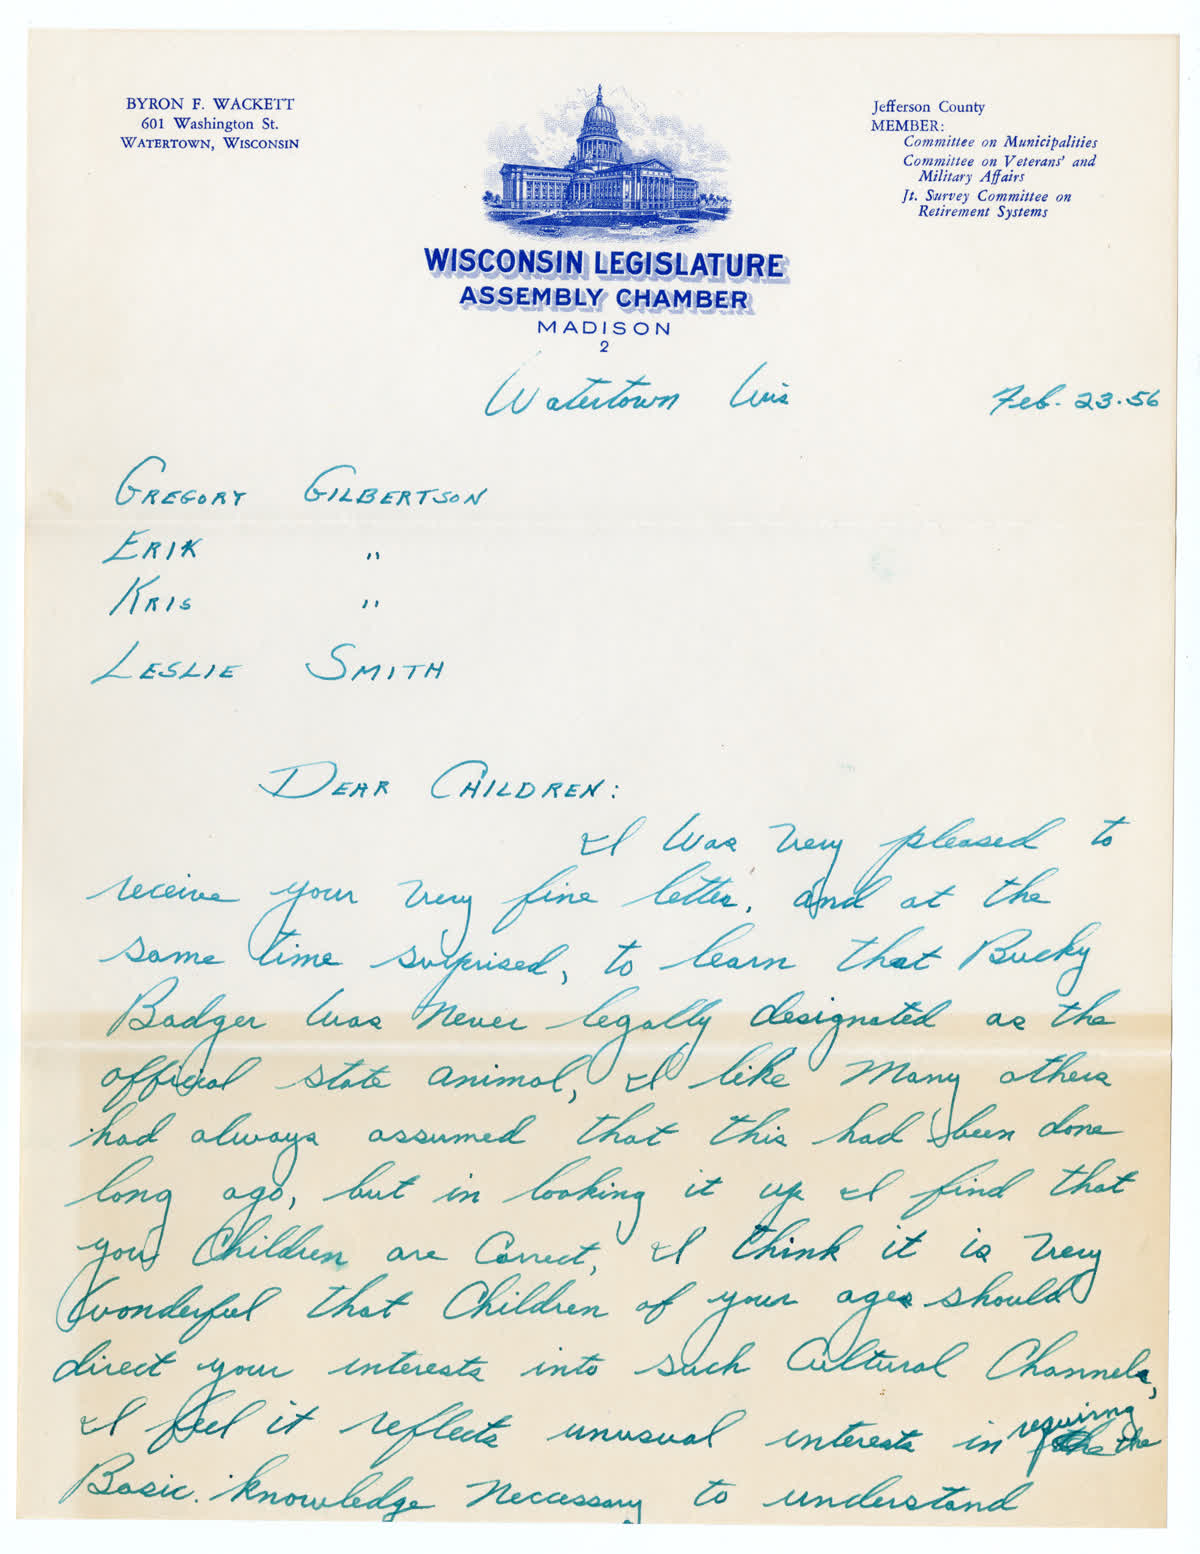 BYRON F. WACKETT
601 Washington St.
WATERTOWN, WISCONSIN
Jefferson County
MEMBER:
Committee on Municipalities
Committee on Veterans' and
Military Affairs
Jt. Survey Committee on
Retirement Systems
WISCONSIN LEGISLATURE
ASSEMBLY CHAMBER
MADISON
2
Watertown Wis Feb. 23. 56
GREGORY GILBERTSON
ERIK "
KRIS "
LESLIE SMITH
DEAR CHILDREN:
I Was Very pleased to
receive your Very fine letter, and at the
same time surprised, to learn that Bucky
Badger Was Never legally designated as the
official state animal, I like Many others
had always assumed that this had been done
long ago, but in looking it up I find that
you Children are Correct, I think it is Very
Wonderful that Children of your ages should
direct your interests into such Cultural Channels,
I feel it reflects unusual interests in requiring the
Basic. knowledge Necessary to understand